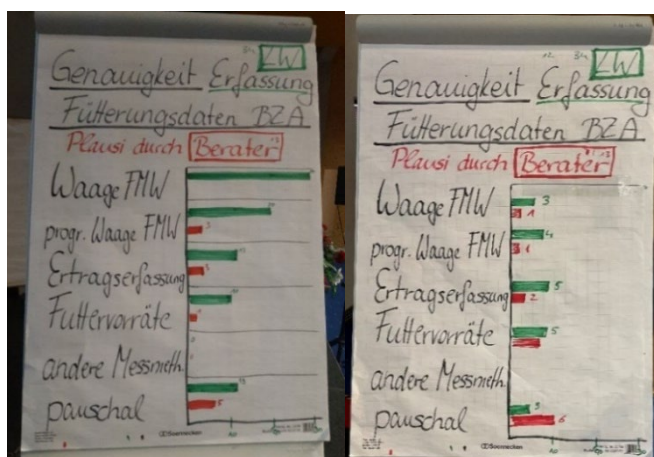 LW
Genauigkeit Erfassung
Fütterungsdaten BZA
Plausi durch Berater
Waage FMW
progr. Waage FMW
3
Ertragserfassung
3
Futtervorräte
andere Messmeth.
pauschal
5
Soennecken
LW
Genauigkeit Erfassung
Fütterungsdaten BZA
Plausi durch Berater
Waage FMW
3
1
progr. Waage FMW
4
1
Ertragserfassung
5
2
Futtervorräte
5
andere Messmeth.
pauschal
3
6
Soennecken